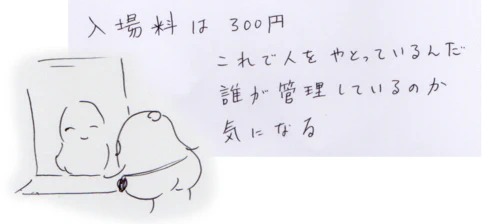 入場料は 300円
これで人をやとっているんだ
誰が管理しているのか
気になる